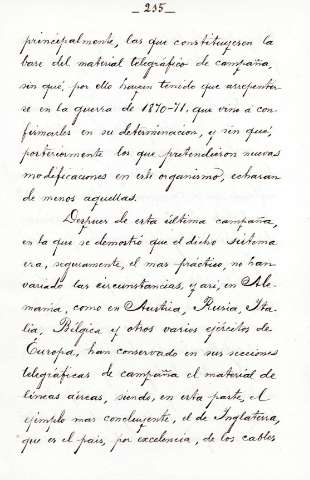 - 235 -
principalmente, las que constituyeron la
base del material telegráfico de campaña,
sin qué, por ello hayan tenido que arrepentir-
se en la guerra de 1870-71, que vino á con
firmarles en su determinacion, y sin qué,
posteriormente los que pretendieron nuevas
modificaciones en este organismo, echaran
de menos aquellas.
Despues de esta última campaña,
en la que se demostró que el dicho sistema
era, seguramente, el mas práctico, no han
variado las circunstancias, y asi, en Ale-
mania, como en Austria, Rusia, Ita-
lia, Bélgica y otros varios ejércitos de
Europa, han conservado en sus secciones
telegráficas de campaña el material de
lineas aéreas, siendo, en esta parte, el
ejemplo mas concluyente, el de Inglaterra,
que es el pais, por excelencia, de los cables